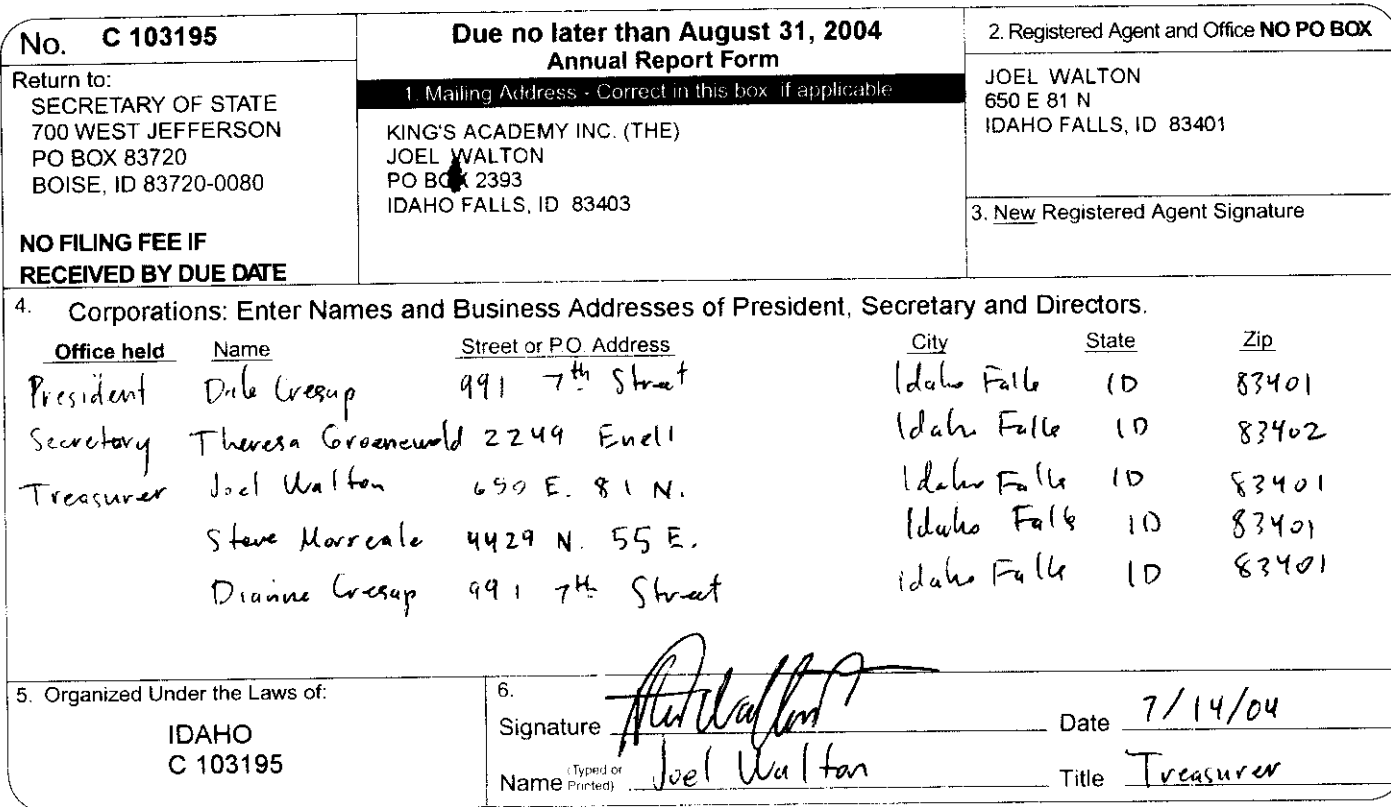 No. C 103195
Return to:
SECRETARY OF STATE
700 WEST JEFFERSON
PO BOX 83720
BOISE, ID 83720-0080
NO FILING FEE IF
RECEIVED BY DUE DATE
Due no later than August 31, 2004
Annual Report Form
1. Mailing Address - Correct in this box if applicable
KING'S ACADEMY INC. (THE)
JOEL WALTON
PO BOX 2393
IDAHO FALLS, ID 83403
2. Registered Agent and Office NO PO BOX
JOEL WALTON
650 E 81 N
IDAHO FALLS, ID 83401
3. New Registered Agent Signature
4. Corporations: Enter Names and Business Addresses of President, Secretary and Directors.
Office held Name Street or P.O. Address City State Zip
President Dale Cresap 991 7th Street Idaho Falls ID 83401
Secretary Theresa Groenewold 2249 Enell Idaho Falls ID 83402
Treasurer Joel Walton 650 E. 81 N. Idaho Falls ID 83401
Steve Morreale 4429 N. 55 E. Idaho Falls ID 83401
Dianne Cresap 991 7th Street idaho Falls ID 83401
5. Organized Under the Laws of:
IDAHO
C 103195
6.
Signature Date 7/14/04
Name (Typed or Printed) Joel Walton Title Treasurer